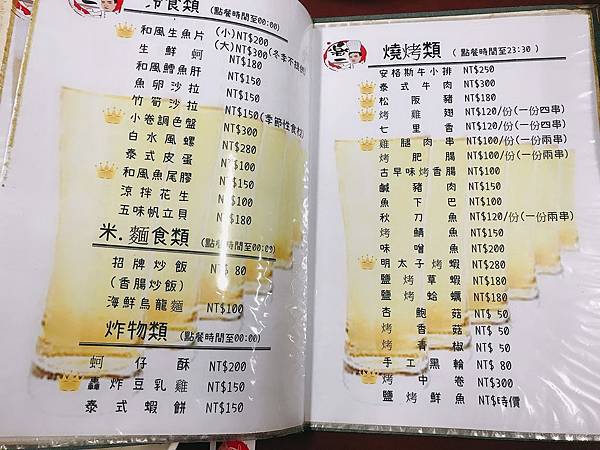 冷食類 (點餐時間至00:00)
和風生魚片 (小)NT$200
(大)NT$300(冬季不提供)
生鮮蚵 NT$180
和風鱈魚肝
魚卵沙拉 NT$150
竹筍沙拉 NT$150(季節性食材)
小卷調色盤 NT$300
白水風螺 NT$280
泰式皮蛋 NT$100
和風魚尾膠 NT$150
涼拌花生 NT$100
五味帆立貝 NT$180
米.麵食類 (點餐時間至00:00)
招牌炒飯 NT$ 80
(香腸炒飯)
海鮮烏龍麵 NT$100
炸物類 (點餐時間至00:00)
蚵仔酥 NT$200
轟炸豆乳雞 NT$150
泰式蝦餅 NT$150
燒烤類 (點餐時間至23:30)
安格斯牛小排 NT$250
泰式牛肉 NT$300
松阪豬 NT$180
烤雞翅 NT$120/份(一份四串)
七里香 NT$120/份(一份四串)
雞腿肉串 NT$100/份(一份兩串)
烤肥腸 NT$100/份(一份兩串)
古早味烤香腸 NT$100
鹹豬肉 NT$150
魚下巴 NT$100
秋刀魚 NT$120/份(一份兩串)
烤鯖魚 NT$150
味噌魚 NT$200
明太子烤蝦 NT$280
鹽烤草蝦 NT$180
鹽烤蛤蠣 NT$180
杏鮑菇 NT$ 50
烤香菇 NT$ 50
烤青椒 NT$ 50
手工黑輪 NT$ 80
烤中卷 NT$300
鹽烤鮮魚 NT$時價